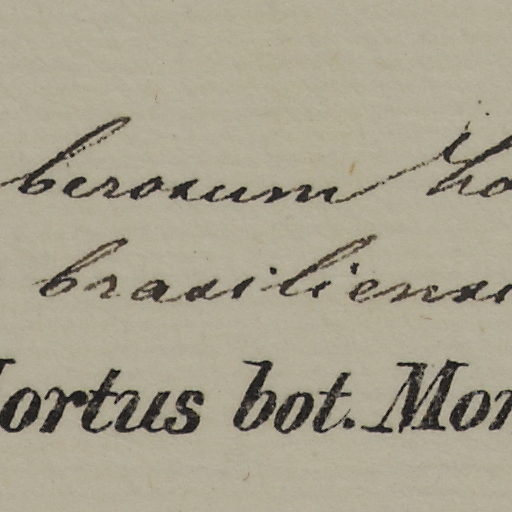 berosum
brasiliens
Hortus bot. Mon